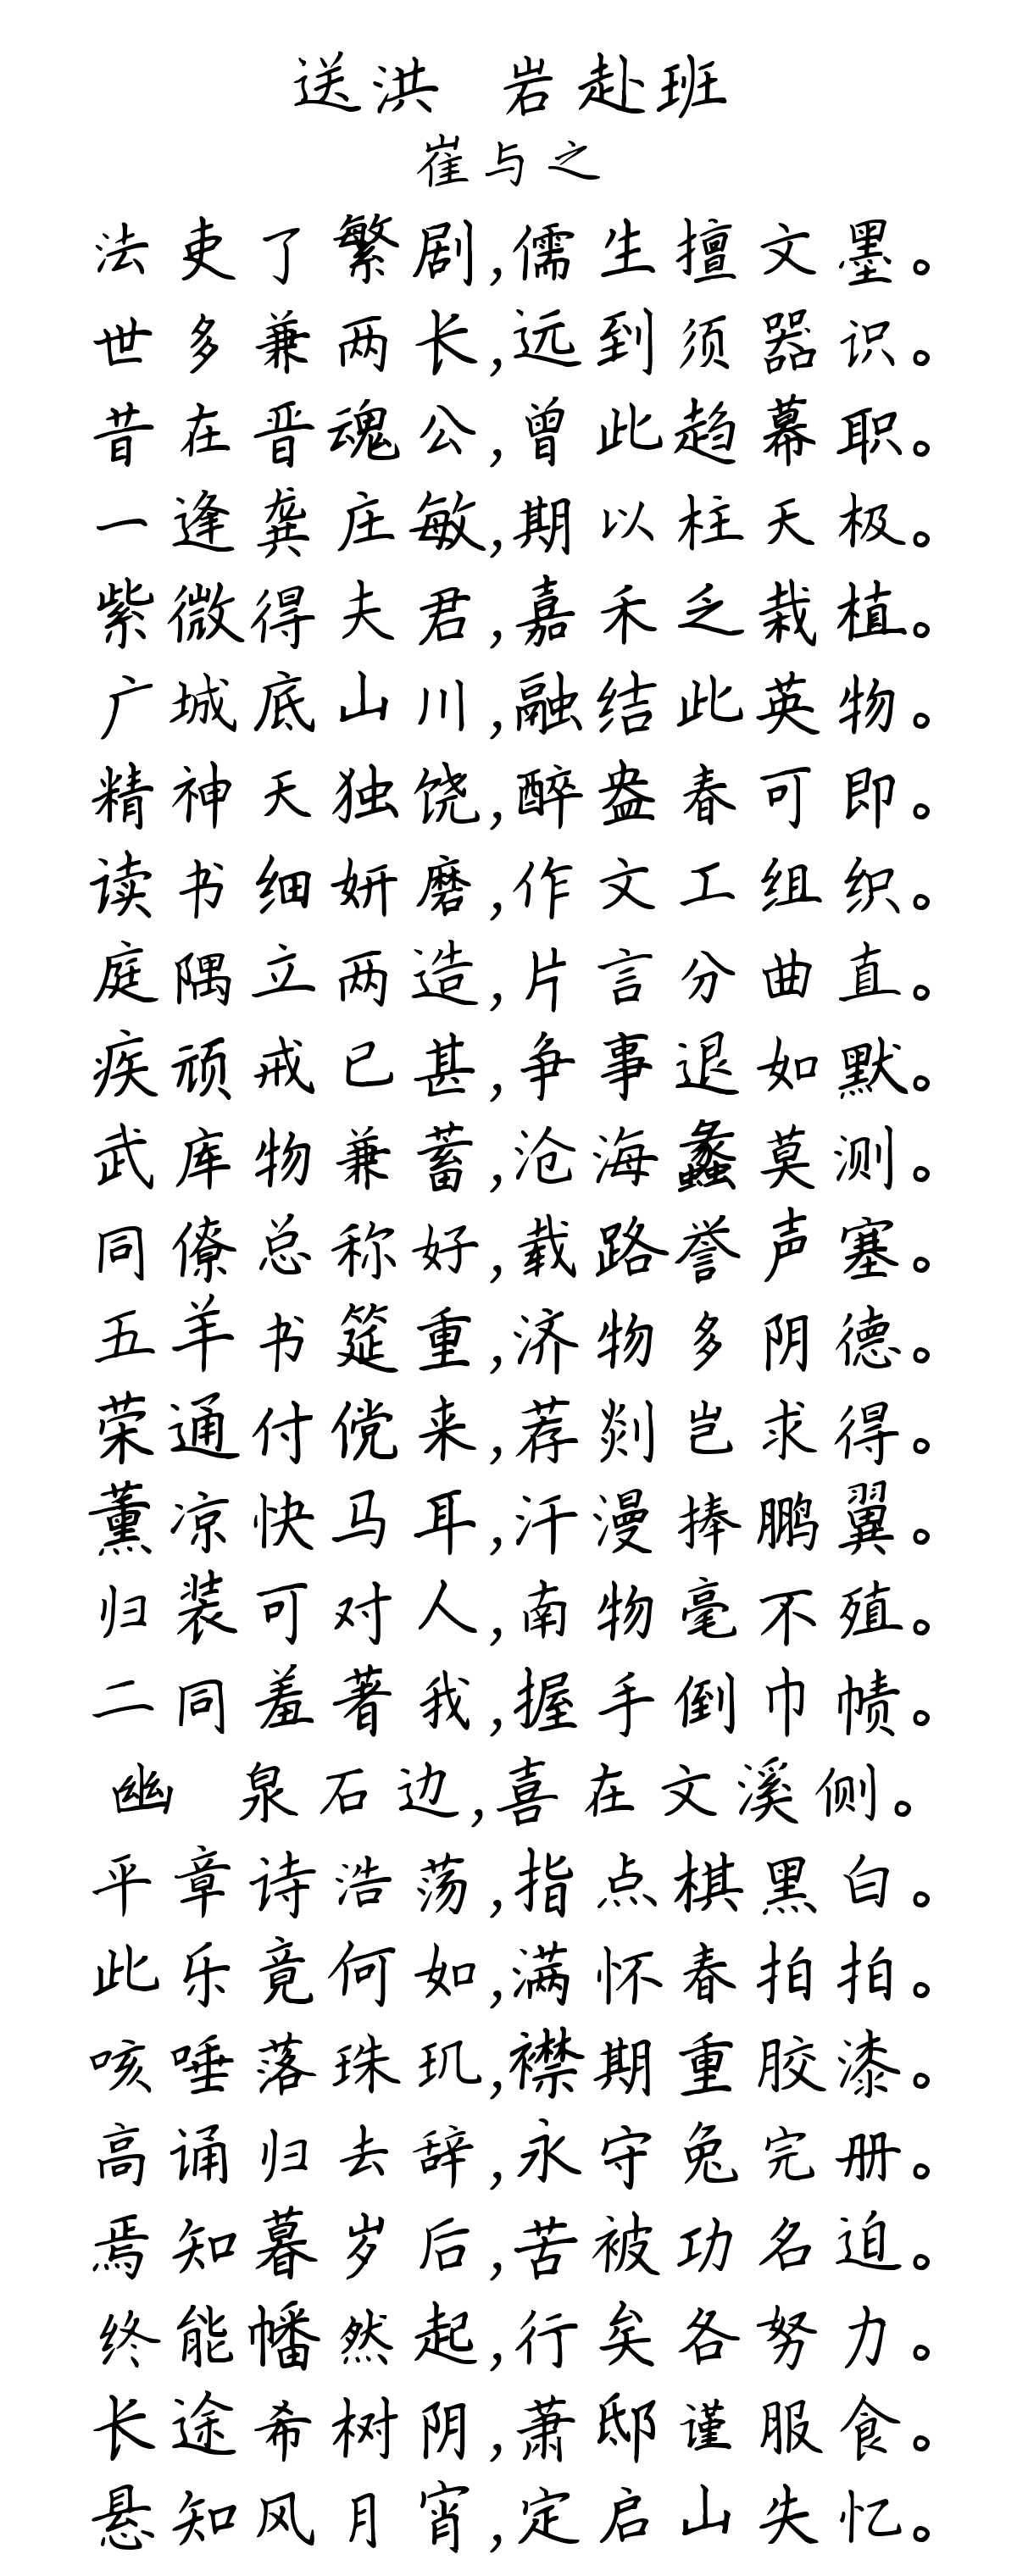 送洪 岩赴班
崔与之
法吏了繁剧,儒生擅文墨。
世多兼两长,远到须器识。
昔在晋魂公,曾此趋幕职。
一逢龚庄敏,期以柱天极。
紫微得夫君,嘉禾乏栽植。
广城底山川,融结此英物。
精神天独饶,醉盎春可即。
读书细妍磨,作文工组织。
庭隅立两造,片言分曲直。
疾顽戒已甚,争事退如默。
武库物兼蓄,沧海蠡莫测。
同僚总称好,载路誉声塞。
五羊书筵重,济物多阴德。
荣通付傥来,荐剡岂求得。
薰凉快马耳,汗漫捧鹏翼。
归装可对人,南物毫不殖。
二同羞著我,握手倒巾帻。
幽 泉石边,喜在文溪侧。
平章诗浩荡,指点棋黑白。
此乐竟何如,满怀春拍拍。
咳唾落珠玑,襟期重胶漆。
高诵归去辞,永守兔完册。
焉知暮岁后,苦被功名迫。
终能幡然起,行矣各努力。
长途希树阴,萧邸谨服食。
悬知风月宵,定启山失忆。